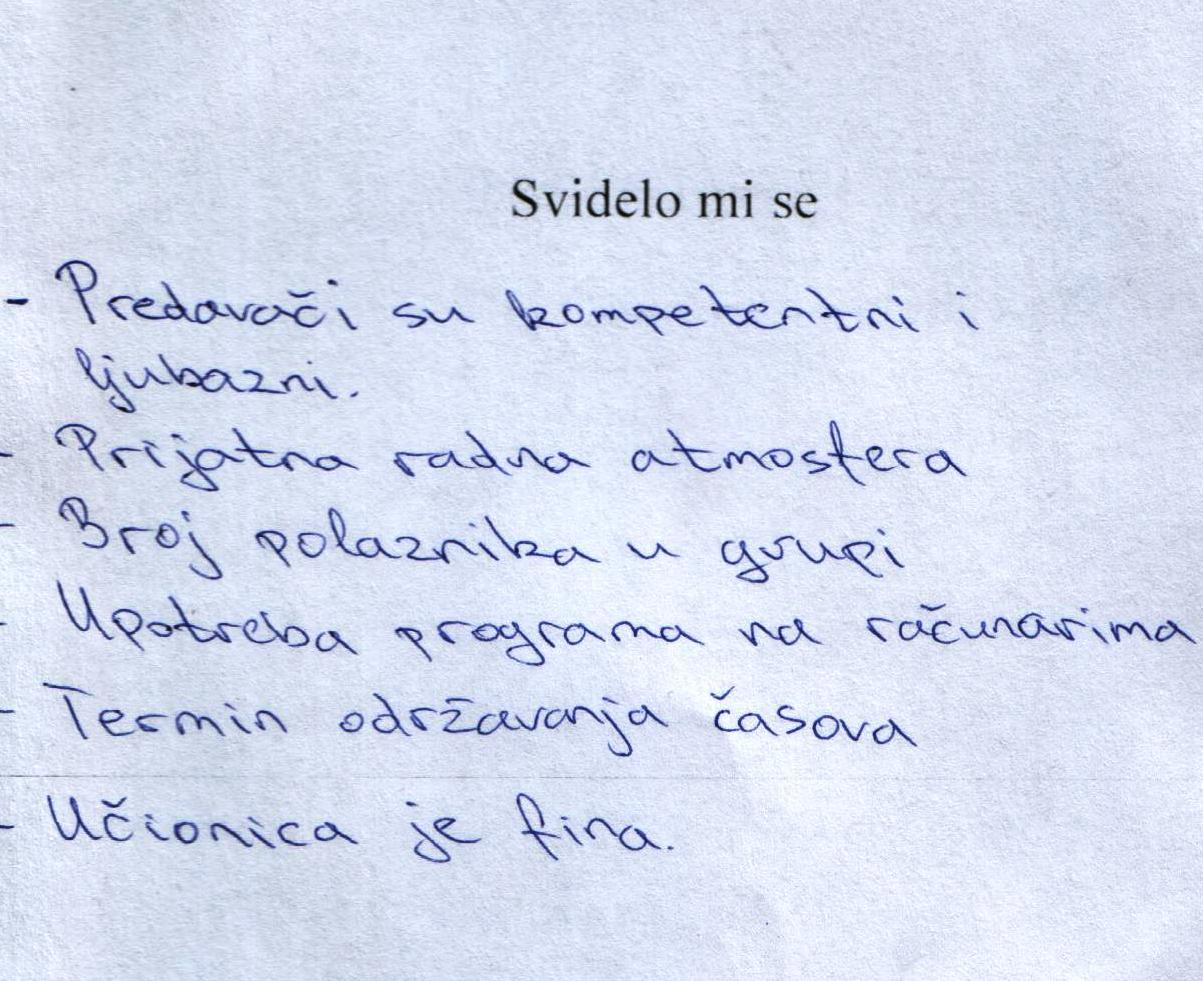 Svidelo mi se
- Predavači su kompetentni i
ljubazni.
- Prijatna radna atmosfera
- Broj polaznika u grupi
- Upotreba programa na računarima
- Termin održavanja časova
- Učionica je fina.